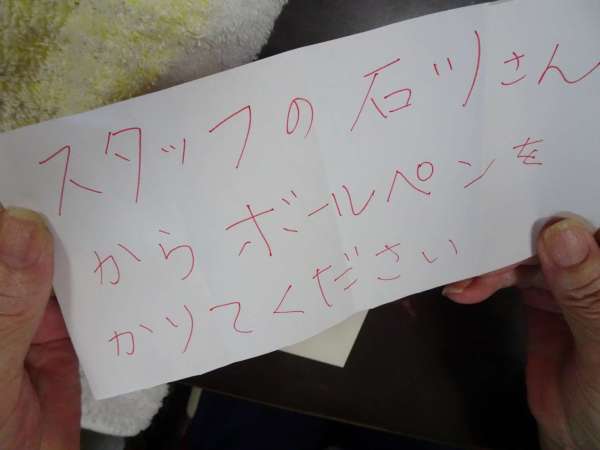 スタッフの石ツさん
からボールペンを
かりてください